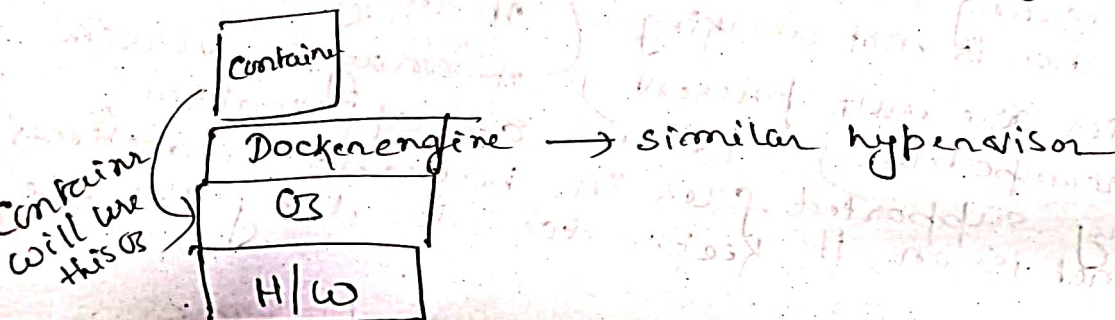 Container
Dockerengine → similar hypervisor
Container
will use
this OS
OS
H/W